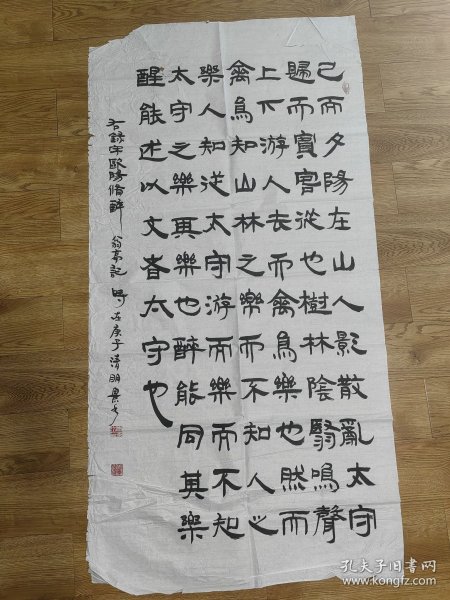 已而夕陽在山人影散亂太守
歸而賓客從也樹林陰翳鳴聲
上下游人去而禽鳥樂也然而
禽鳥知山林之樂而不知人之
樂人知從太守游而樂而不知
太守之樂其樂也醉能同其樂
醒能述以文者太守也
右錄宋歐陽脩醉翁亭記 時在庚子清明
孔夫子旧书网
www.kongfz.com